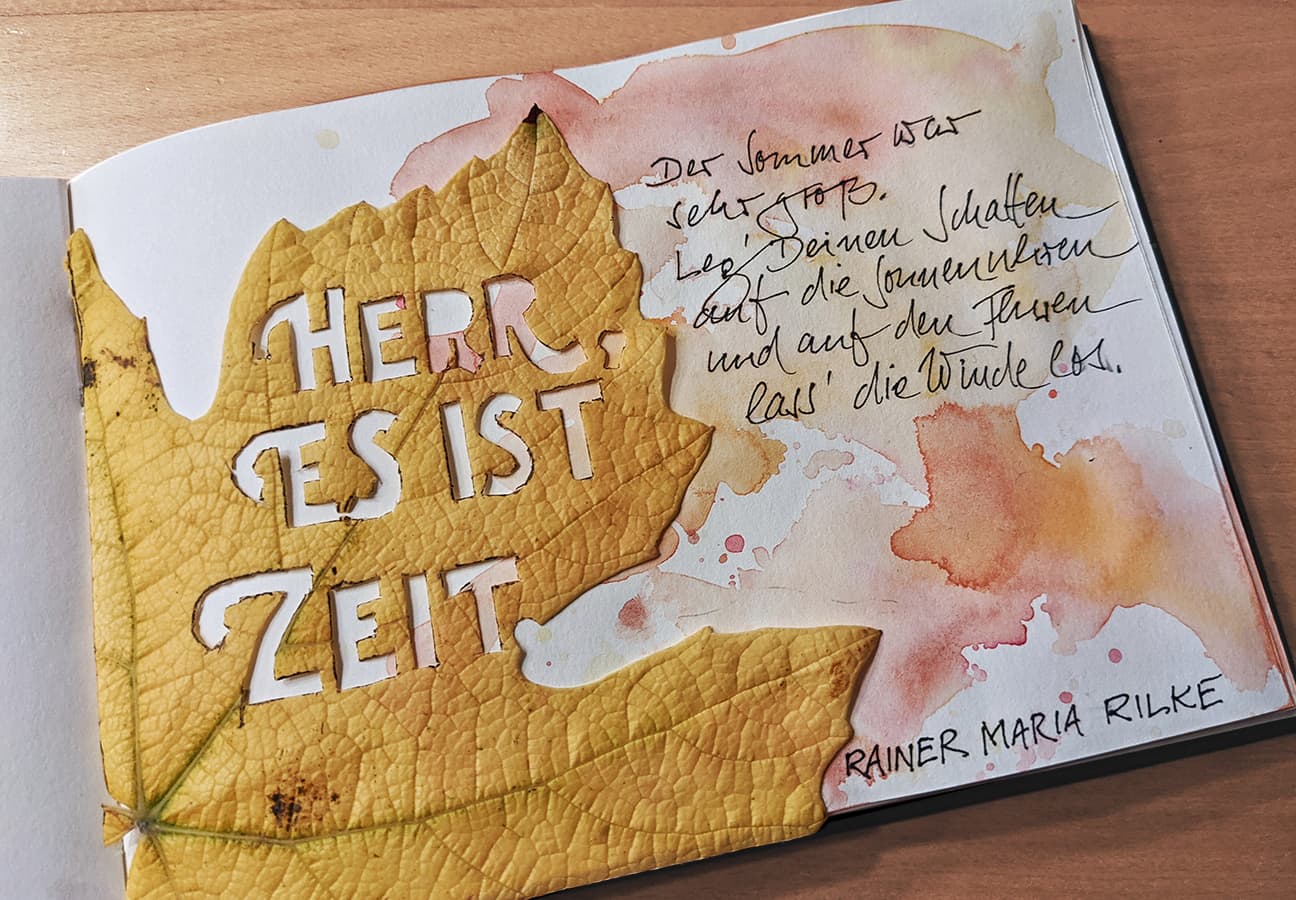 HERR,
ES IST
ZEIT
Der Sommer war
sehr groß.
Leg' Deinen Schatten
auf die Sonnenuhren
und auf den Fluren
lass' die Winde los.
RAINER MARIA RILKE